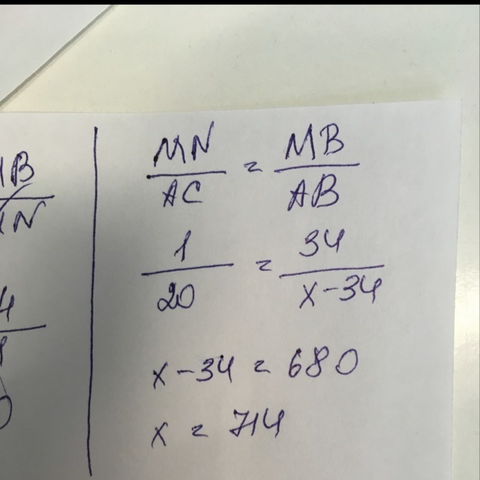 MB
MN
MN/AC = MB/AB
1/20 = 34/x-34
x-34 = 680
x = 714